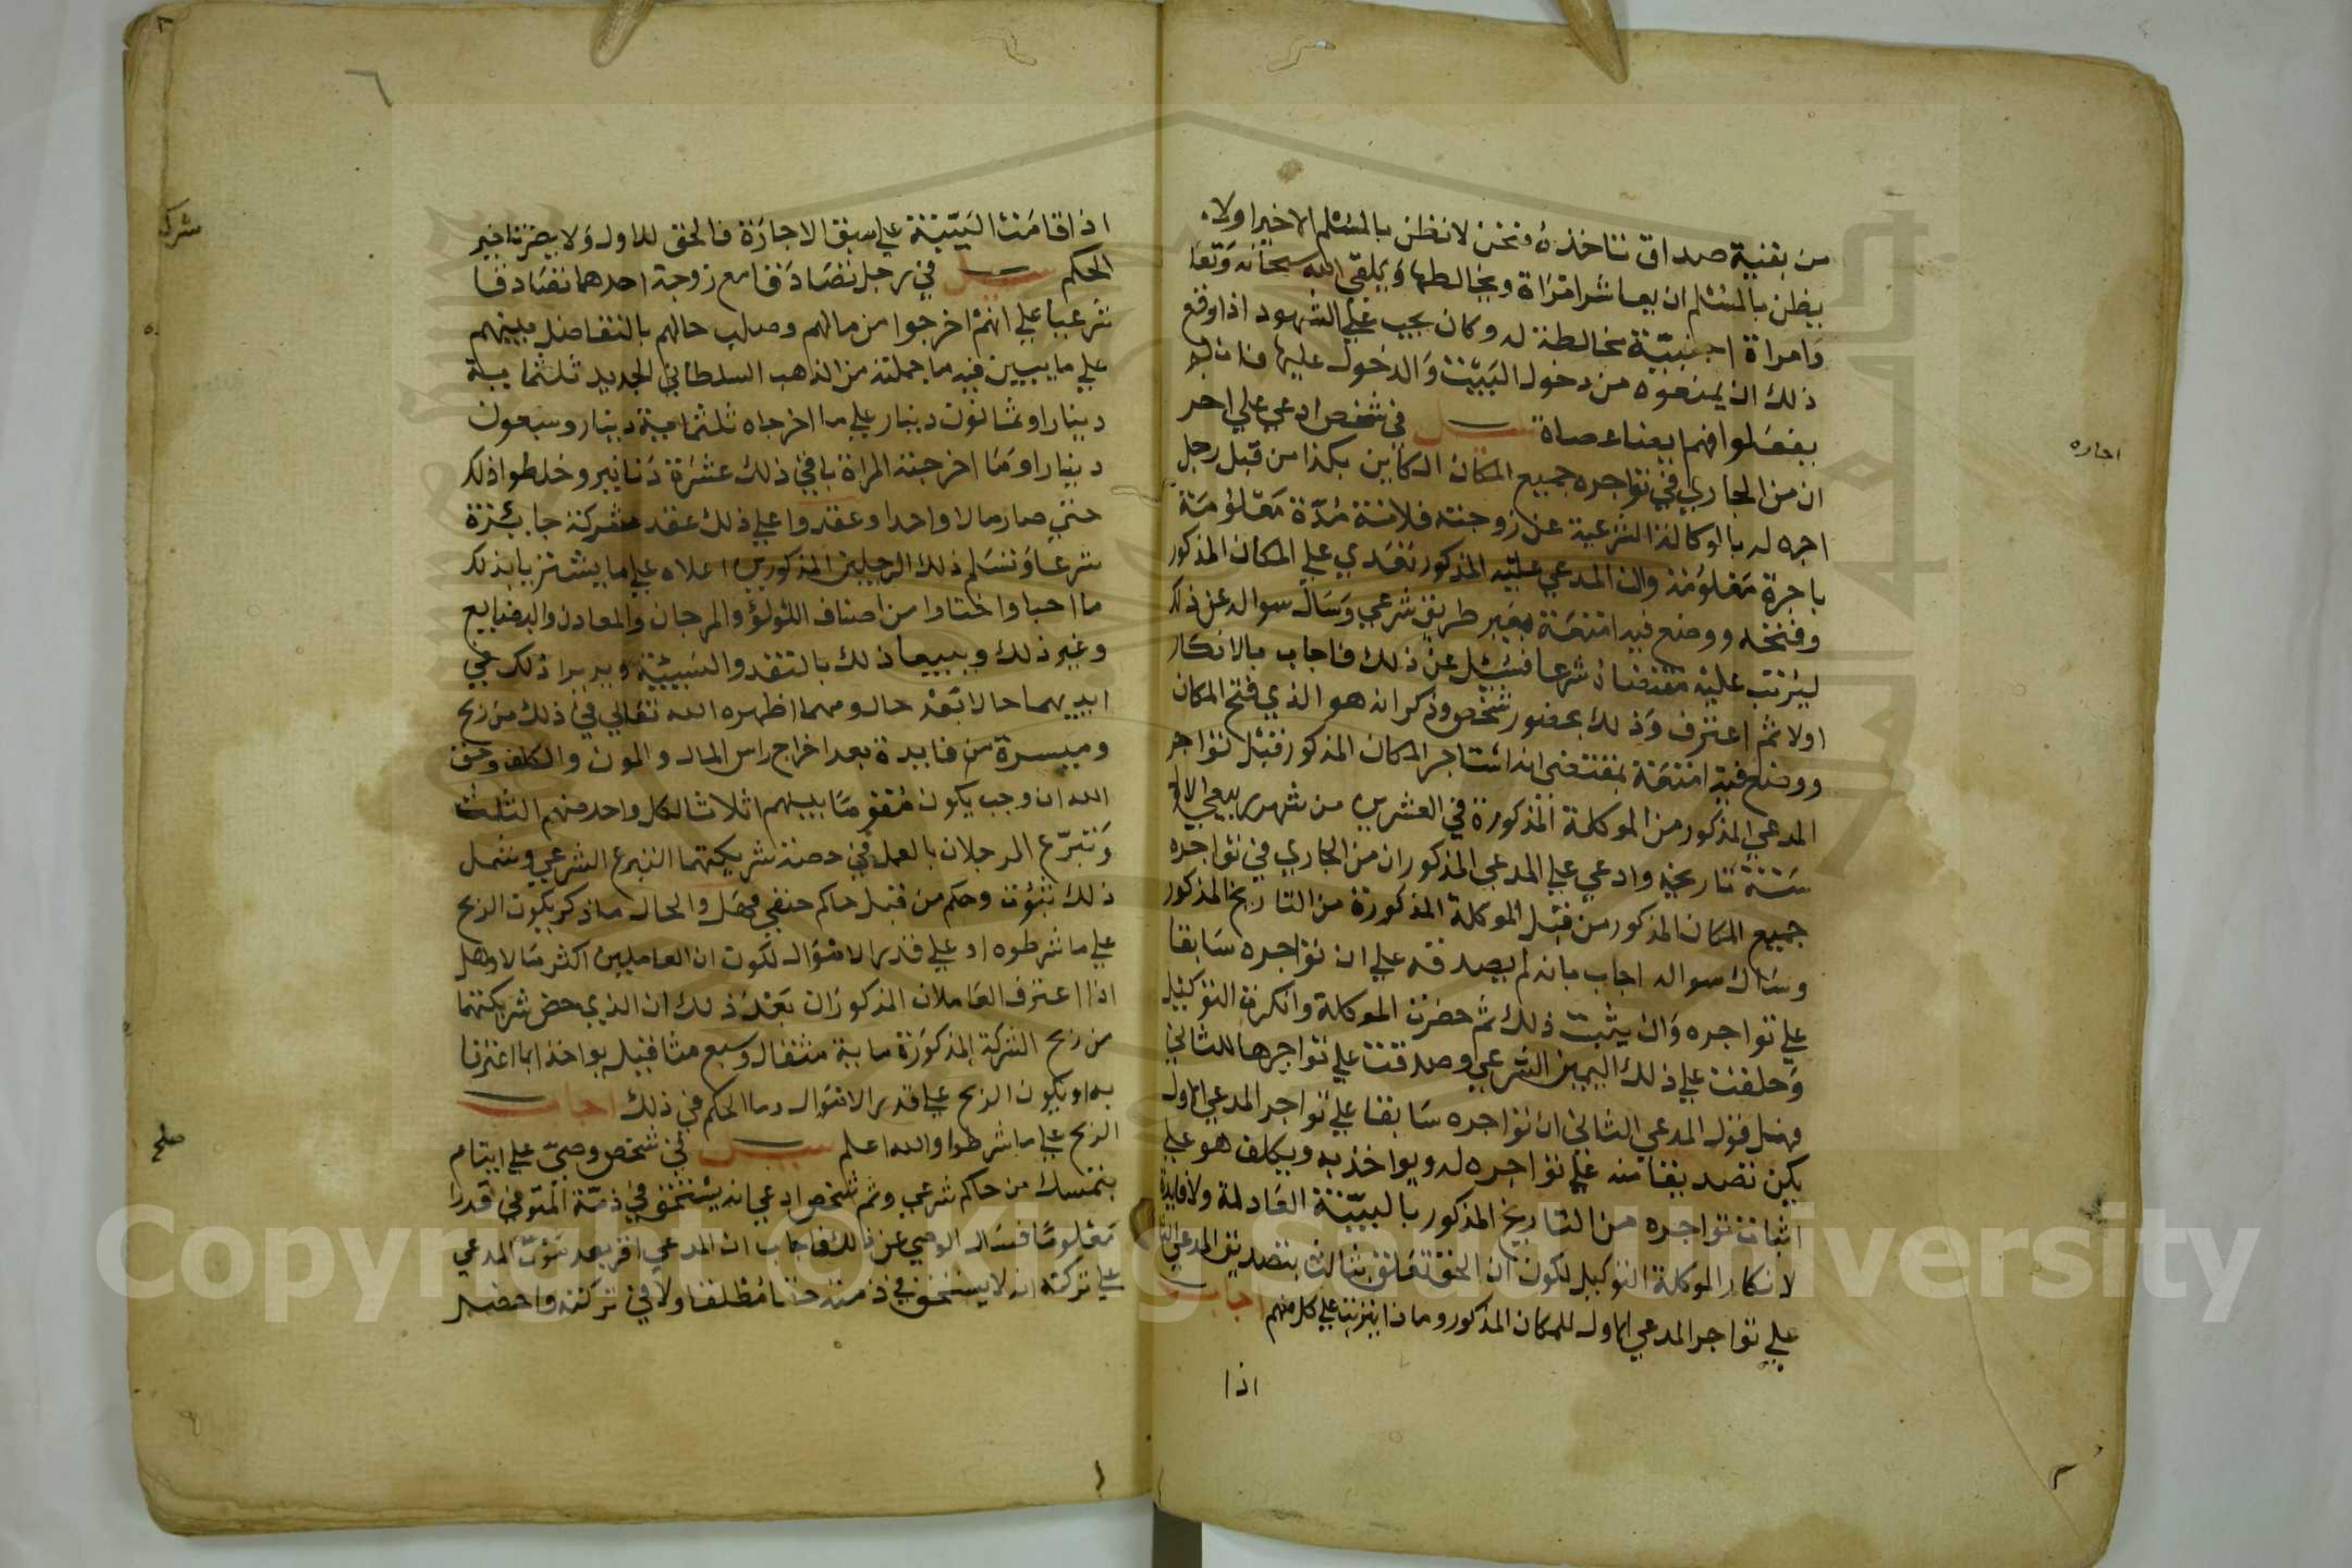 من بقية صداق تناخذه ونحن لا نظن بالمسلم الا خيرا ولا
يظن بالمسلم ان يعاشر امراة ويخالطها ويلقى الله سبحانه وتعا
وامراة اجنبيّة مخالطة له وكان يجب على الشهود اذا وقع
ذلك ان يمنعوه من دخول البيت والدخول عليها فان لم
يفعلوا فهما يعنا عصاة سيل في شخص ادعي علي اخر
ان من الجاري في تواجره جميع المكان الكاين بكذا من قبل رجل
اجره له بالوكالة الشرعية عن زوجته فلانة مدّة معلومة
باجرة معلومة وان المدعي عليه المذكور تعدي علي المكان المذكور
وفتحه ووضع فيه امتعة بغير طريق شرعي وسال سواله عن ذلك
ليرتب عليه مقتضاه شرعا فسئيل عن ذلك فاجاب بالانكار
اولا ثم اعترف وذلك بحضور شخص وذكر انه هو الذي فتح المكان
ووضع فيه امتعة بمقتضي انه استاجر المكان المذكور قبل تواجر
المدعي المذكور من الموكلة المذكورة في العشرين من شهر ربيع الاول
سنة تاريخه وادعي علي المدعي المذكور ان من الجاري في تواجره
جميع المكان المذكور من قبل الموكلة المذكورة من التاريخ المذكور
وسال سواله اجاب بانه لم يصدقه علي ان تواجره سابقا
علي تواجره وان يثبت ذلك ثم حضرت الموكلة وانكرت التوكيل
وحلفت علي ذلك اليمين الشرعي وصدقت علي تواجرها للثاني
فهل قول المدعي الثاني ان تواجره سابقا علي تواجر المدعي الاول
يكن تصديقا منه علي تواجره له ويواخذ به ويكلف هو علي
اثبات تواجره من التاريخ المذكور بالبيّنة العادلة ولا فايدة
لانكار الموكلة التوكيل لكون ان الحق تعلق بثالث بتصديق المدعي الثا
علي تواجر المدعي الاول للمكان المذكور وماذا يترتب علي كل منهم اجاب
اذا
اجاره
اذا قامت البيّنة علي سبق الاجارة فالحق للاول ولا يضر تاخير
الحكم سيل في رجل تصادقا مع زوجة احدهما تصادقا
شرعيا علي انهم اخرجوا من مالهم وصلب حالهم بالتفاضل بينهم
علي ما يبين فيه ما جملته من الذهب السلطاني الجديد ثلثماية
دينارا وثمانون دينار علي ما اخرجاه ثلثماية دينار وسبعون
دينارا وما اخرجته المراة باقي ذلك عشرة دنانير وخلطوا ذلك
حتي صار مالا واحدا وعقدوا علي ذلك عقد شركة جايزة
شرعا وتسلم ذلك الرجلين المذكورين اعلاه علي ما يشتريا بذلك
ما احبا واختارا من اصناف اللؤلؤ والمرجان والمعادن والبضايع
وغير ذلك ويبيعا ذلك بالنقد والنسيئة ويديرا ذلك في
ايديهما حالا بعد حال ومهما اظهره الله تعالي في ذلك من ربح
وميسرة من فايدة بعد اخراج راس المال والمون والكلف وحق
الله ان وجب يكون مقسوما بينهم اثلاثا لكل واحد منهم الثلث
وتبرّع الرجلان بالعمل في حصة شريكتهما التبرع الشرعي وشمل
ذلك ثبوت وحكم من قبل حاكم حنفي فهل والحال ما ذكر يكون الربح
علي ما شرطوه او علي قدر الاموال لكون ان العاملين اكثر مالا وهل
اذا اعترف العاملان المذكوران بعد ذلك ان الذي خص شريكتهما
من ربح الشركة المذكورة ماية مثقال وسبع مثاقيل يواخذا بما اعترفا
به او يكون الربح علي قدر الاموال وما الحكم في ذلك اجاب
الربح علي ما شرطوا والله اعلم سيل في شخص وصيّ علي ايتام
بتمسك من حاكم شرعي وثم شخص ادعي انه يستحق في ذمّة المتوفي قدرا
معلوما فسال الوصي عن ذلك فاجاب ان المدعي اقر بعد موت المدعي
علي تركته انه لا يستحق في ذمته حقا مطلقا ولا في تركته واحضر
شركه
صلح
Copyright © King Saud University